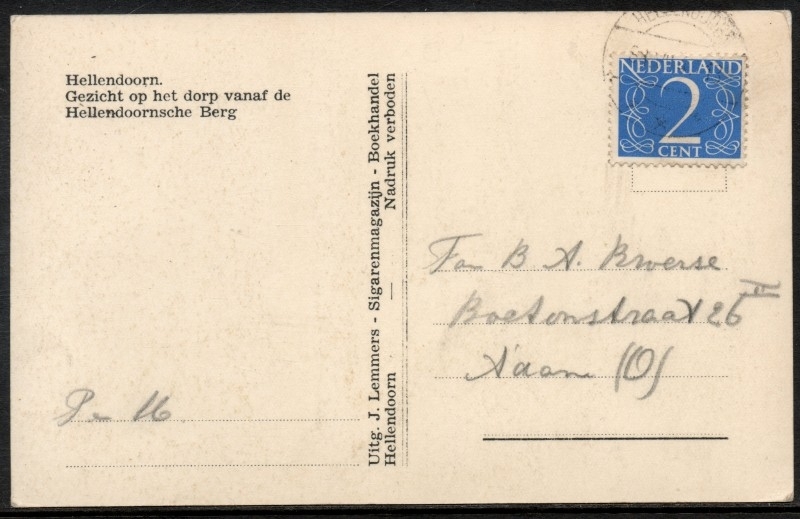 Hellendoorn.
Gezicht op het dorp vanaf de
Hellendoornsche Berg
Uitg. J. Lemmers - Sigarenmagazijn - Boekhandel
Hellendoorn — Nadruk verboden
HELLENDOORN
NEDERLAND
2
CENT
Fam B. A. Bwerse
Boetonstraat 26 II
A'dam (O)
P en M